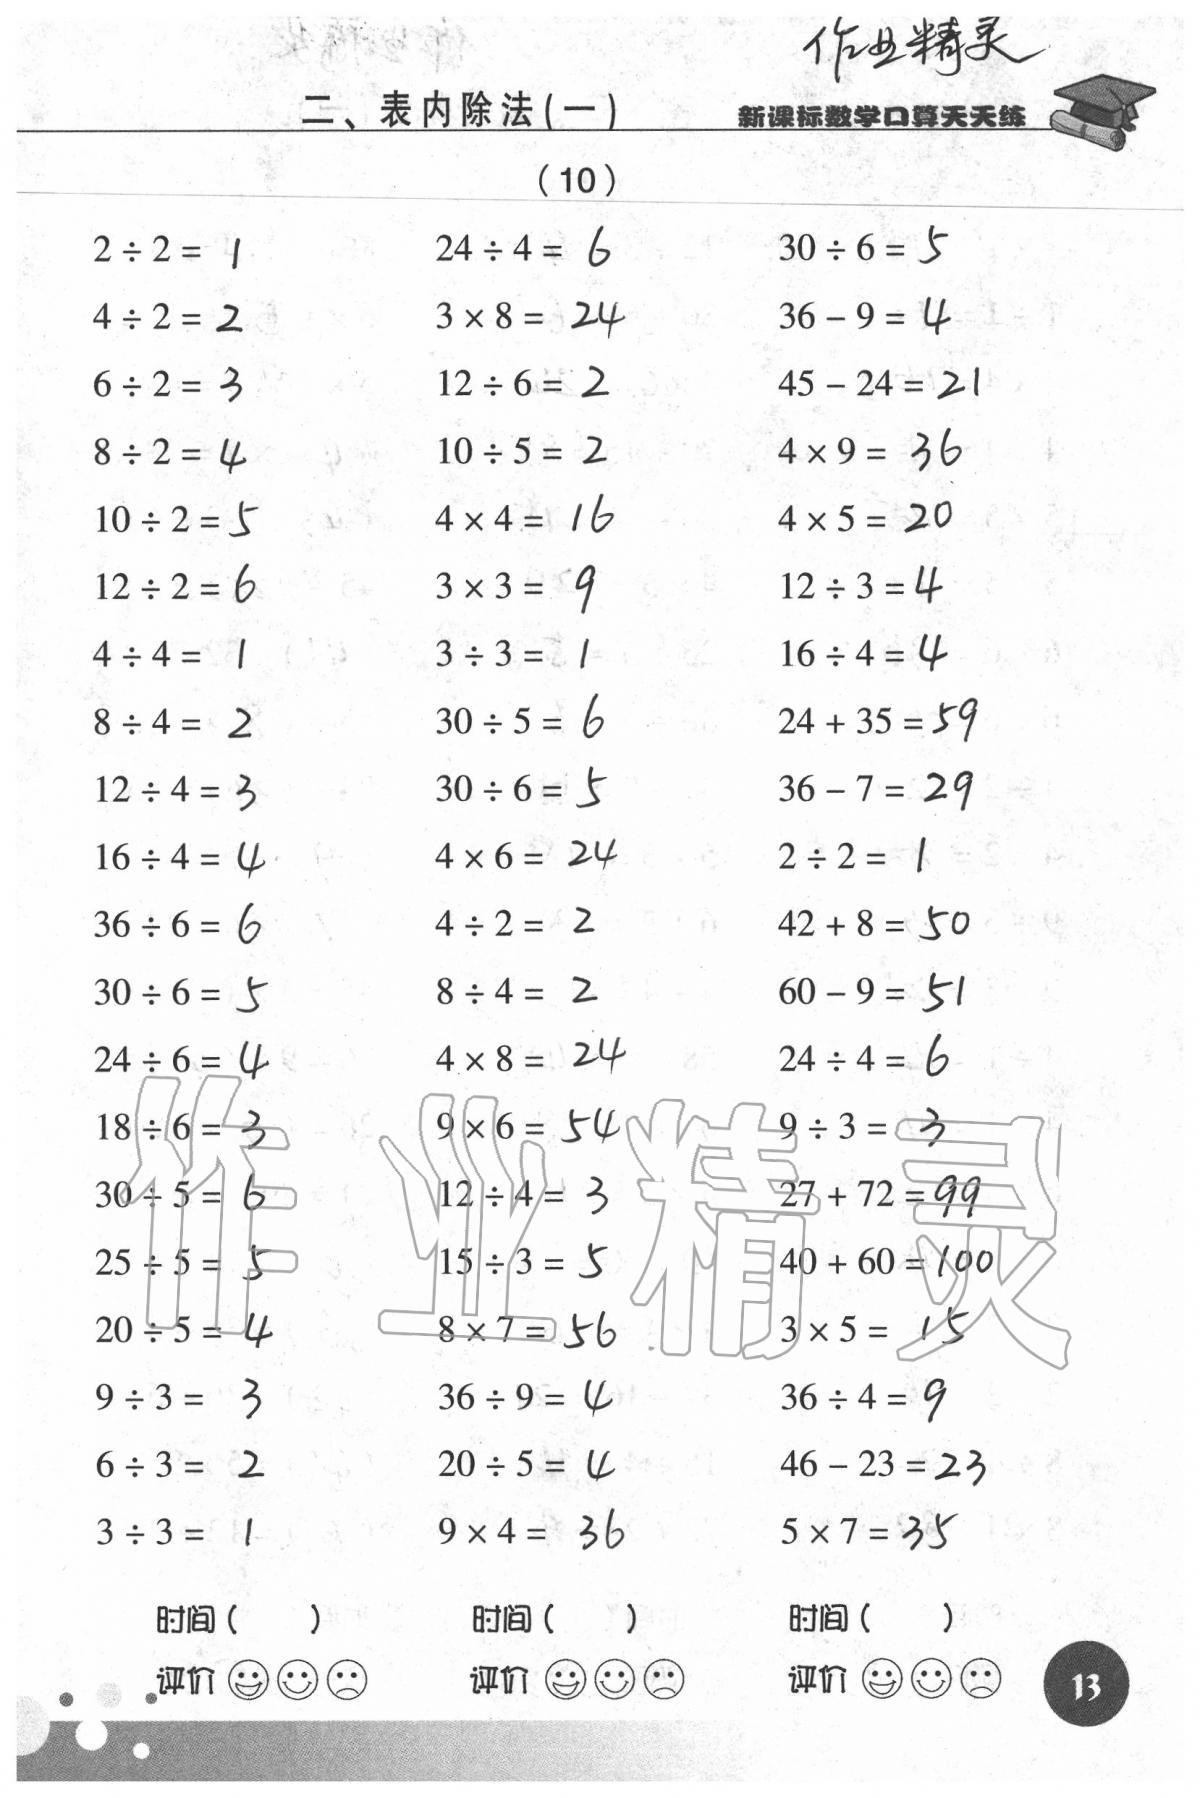 作业精灵
二、表内除法(一)
新课标数学口算天天练
(10)
2 ÷ 2 = 1
4 ÷ 2 = 2
6 ÷ 2 = 3
8 ÷ 2 = 4
10 ÷ 2 = 5
12 ÷ 2 = 6
4 ÷ 4 = 1
8 ÷ 4 = 2
12 ÷ 4 = 3
16 ÷ 4 = 4
36 ÷ 6 = 6
30 ÷ 6 = 5
24 ÷ 6 = 4
18 ÷ 6 = 3
30 ÷ 5 = 6
25 ÷ 5 = 5
20 ÷ 5 = 4
9 ÷ 3 = 3
6 ÷ 3 = 2
3 ÷ 3 = 1
时间( )
评价
24 ÷ 4 = 6
3 × 8 = 24
12 ÷ 6 = 2
10 ÷ 5 = 2
4 × 4 = 16
3 × 3 = 9
3 ÷ 3 = 1
30 ÷ 5 = 6
30 ÷ 6 = 5
4 × 6 = 24
4 ÷ 2 = 2
8 ÷ 4 = 2
4 × 8 = 24
9 × 6 = 54
12 ÷ 4 = 3
15 ÷ 3 = 5
8 × 7 = 56
36 ÷ 9 = 4
20 ÷ 5 = 4
9 × 4 = 36
时间( )
评价
30 ÷ 6 = 5
36 − 9 = 4
45 − 24 = 21
4 × 9 = 36
4 × 5 = 20
12 ÷ 3 = 4
16 ÷ 4 = 4
24 + 35 = 59
36 − 7 = 29
2 ÷ 2 = 1
42 + 8 = 50
60 − 9 = 51
24 ÷ 4 = 6
9 ÷ 3 = 3
27 + 72 = 99
40 + 60 = 100
3 × 5 = 15
36 ÷ 4 = 9
46 − 23 = 23
5 × 7 = 35
时间( )
评价
作业精灵
13